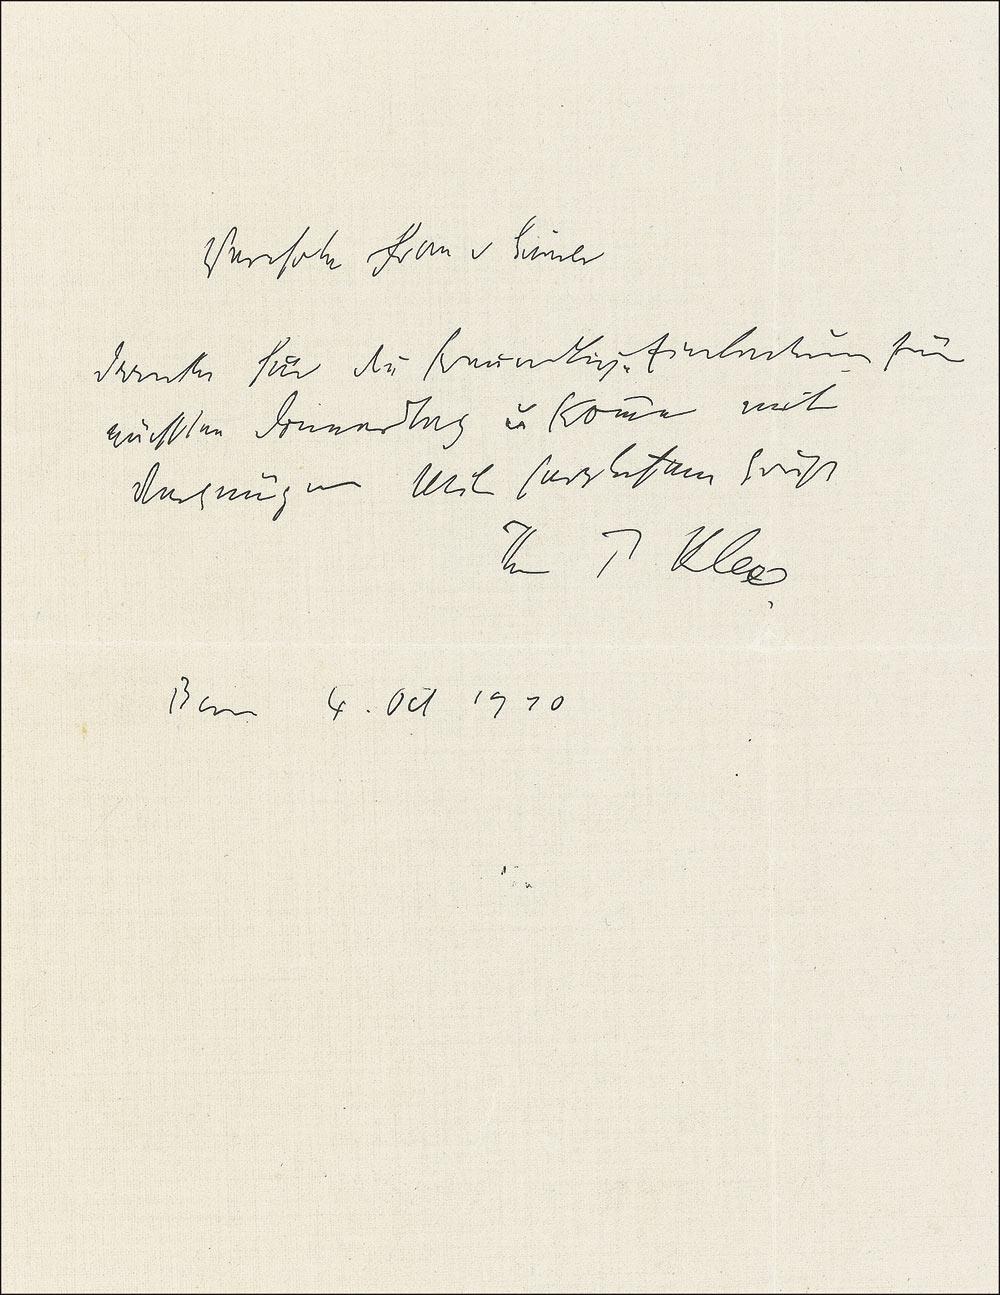 Verehrte Frau v
danke für die freundliche Einladung für
nächsten Donnerstag u komme mit
Vergnügen Mit herzlichem Gruß
Ihr P Klee
Bern 4. Oct 1920